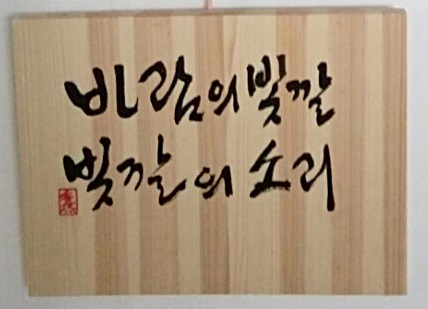 바람의 빛깔
빛깔의 소리